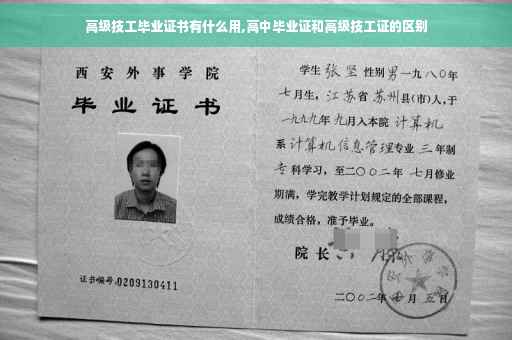 高级技工毕业证书有什么用,高中毕业证和高级技工证的区别
西安外事学院
毕业证书
证书编号:0209130411
学生 张坚 性别 男 一九八〇年
七月生，江苏省 苏州县(市)人，于
一九九九年 九月入本院 计算机
系 计算机信息管理 专业 三 年制
专科学习，至二〇〇二年 七月修业
期满，学完教学计划规定的全部课程，
成绩合格，准予毕业。
院长
二〇〇二年 月五日